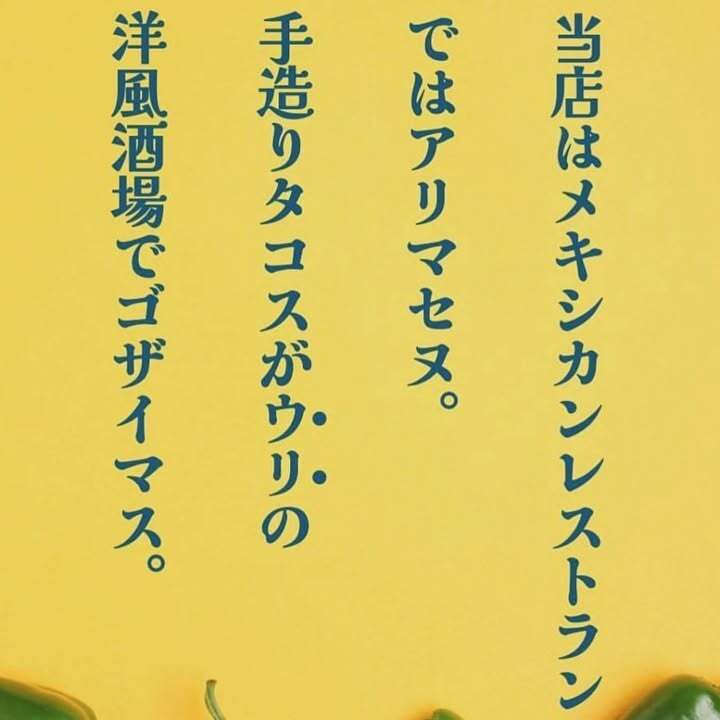 当店はメキシカンレストラン
ではアリマセヌ。
手造りタコスがウリの
洋風酒場でゴザイマス。